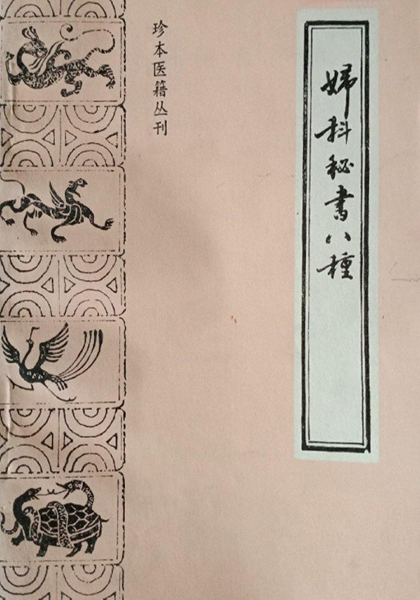 婦科秘書八種
珍本医籍丛刊